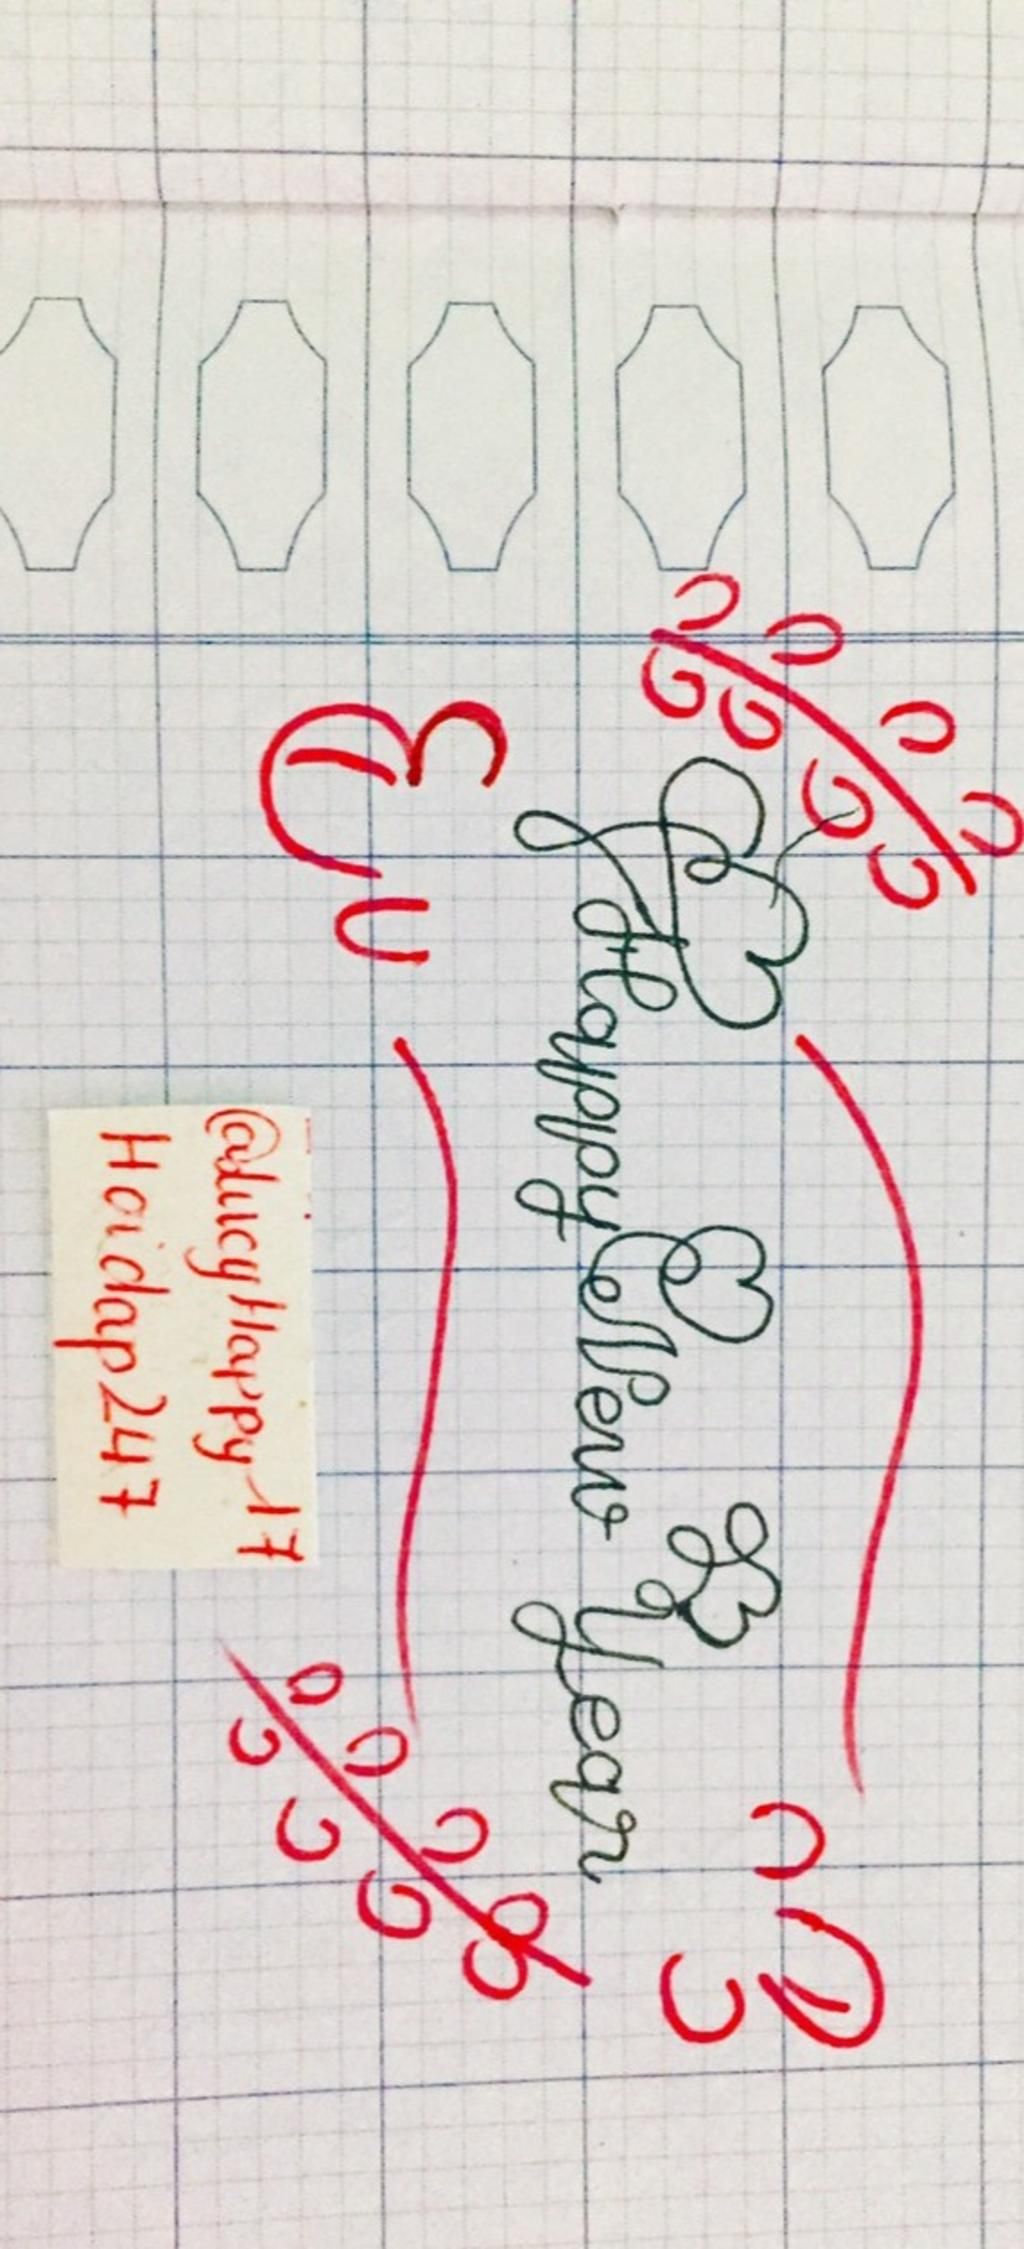 Happy New Year
@LucyHappy_17
Hoidap247